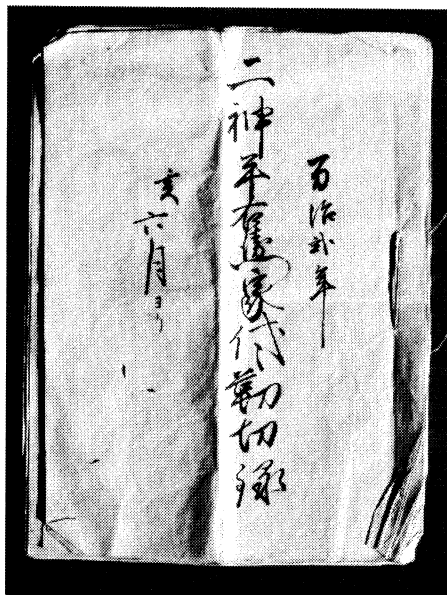 万治弐年
二神平右衛門家代々勤功録
亥六月ヨリ